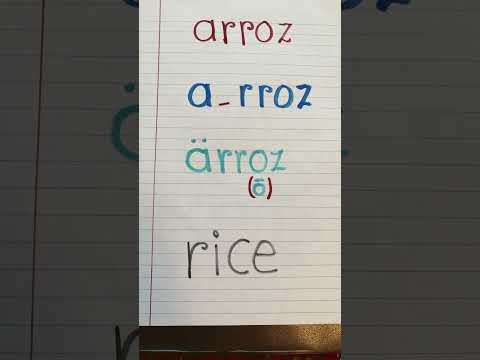 arroz
a-rroz
ärroz
(ō)
rice